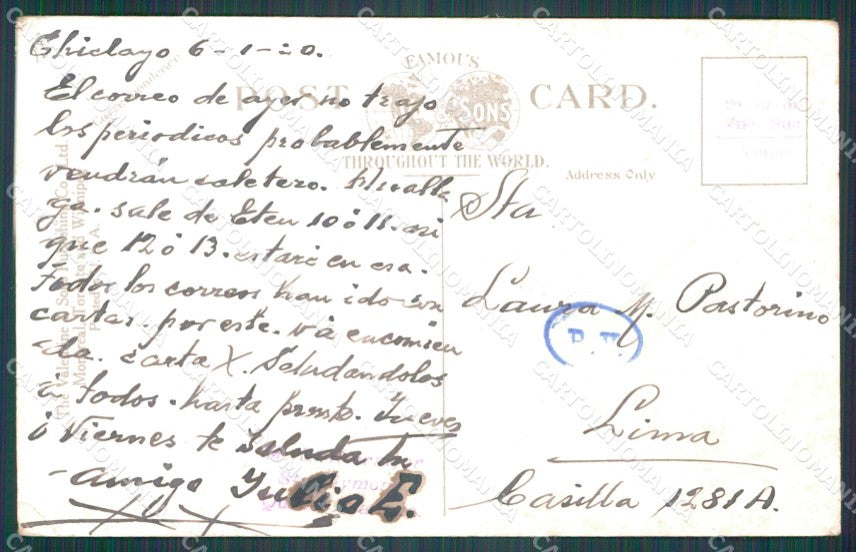 Chiclayo 6-1-20.
El correo de ayer no trajo
los periodicos probablemente
vendrán caletero. El
ga. sale de Eten 10 ó 11. asi
que 12 ó 13. estaré en esa.
Todos los correos han ido con
cartas. por este. vá encomien
da. carta X. Saludandolos
á todos. hasta pronto. Jueves
ó Viernes te saluda tu
amigo Julio E.
FAMOUS
POST CARD.
& SONS
THROUGHOUT THE WORLD.
Correspondence
Address Only
Sta
Laura M. Pastorino
Lima
Casilla 1281A.
The Valentine & Sons Publishing Co., Ltd.
Montreal, Toronto and Winnipeg
CARTOLINOMANIA